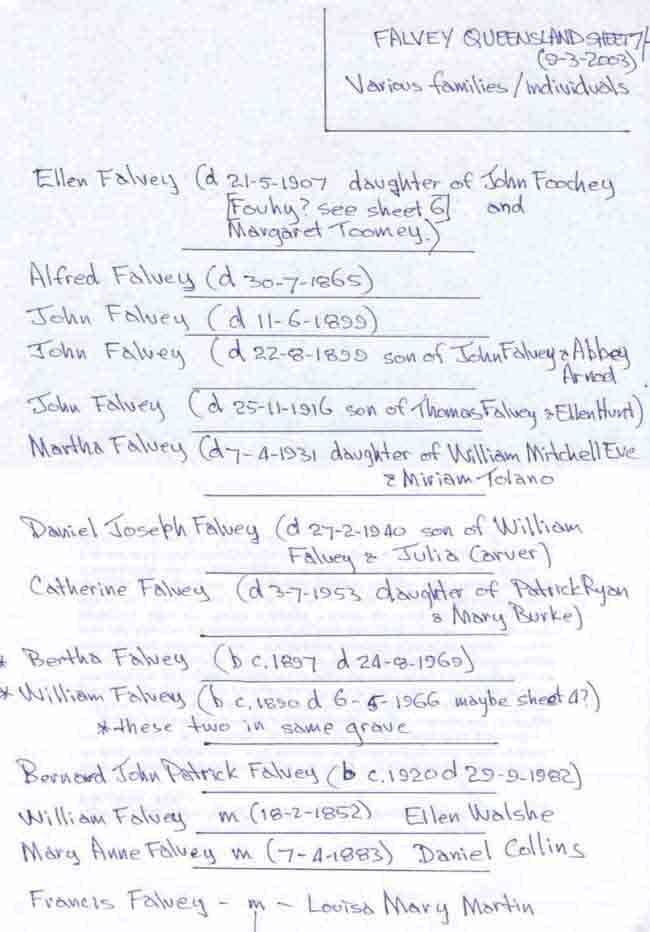 FALVEY QUEENSLAND SHEET 7/
(9-3-2003)
Various families/individuals
Ellen Falvey (d 21-5-1907 daughter of John Foochey
[Fouhy? see sheet 6] and
Margaret Toomey.)
Alfred Falvey (d 30-7-1865)
John Falvey (d 11-6-1899)
John Falvey (d 22-8-1899 son of John Falvey & Abbey
Arnod
John Falvey (d 25-11-1916 son of Thomas Falvey & Ellen Hunt)
Martha Falvey (d 7-4-1931 daughter of William Mitchell Eve
& Miriam Tolano
Daniel Joseph Falvey (d 27-2-1940 son of William
Falvey & Julia Carver)
Catherine Falvey (d 3-7-1953 daughter of Patrick Ryan
& Mary Burke)
* Bertha Falvey (b c.1897 d 24-8-1969)
* William Falvey (b c.1890 d 6-5-1966 maybe sheet 4?)
* these two in same grave
Bernard John Patrick Falvey (b c.1920 d 29-9-1982)
William Falvey m (18-2-1852) Ellen Walshe
Mary Anne Falvey m (7-4-1883) Daniel Collins
Francis Falvey - m - Louisa Mary Martin